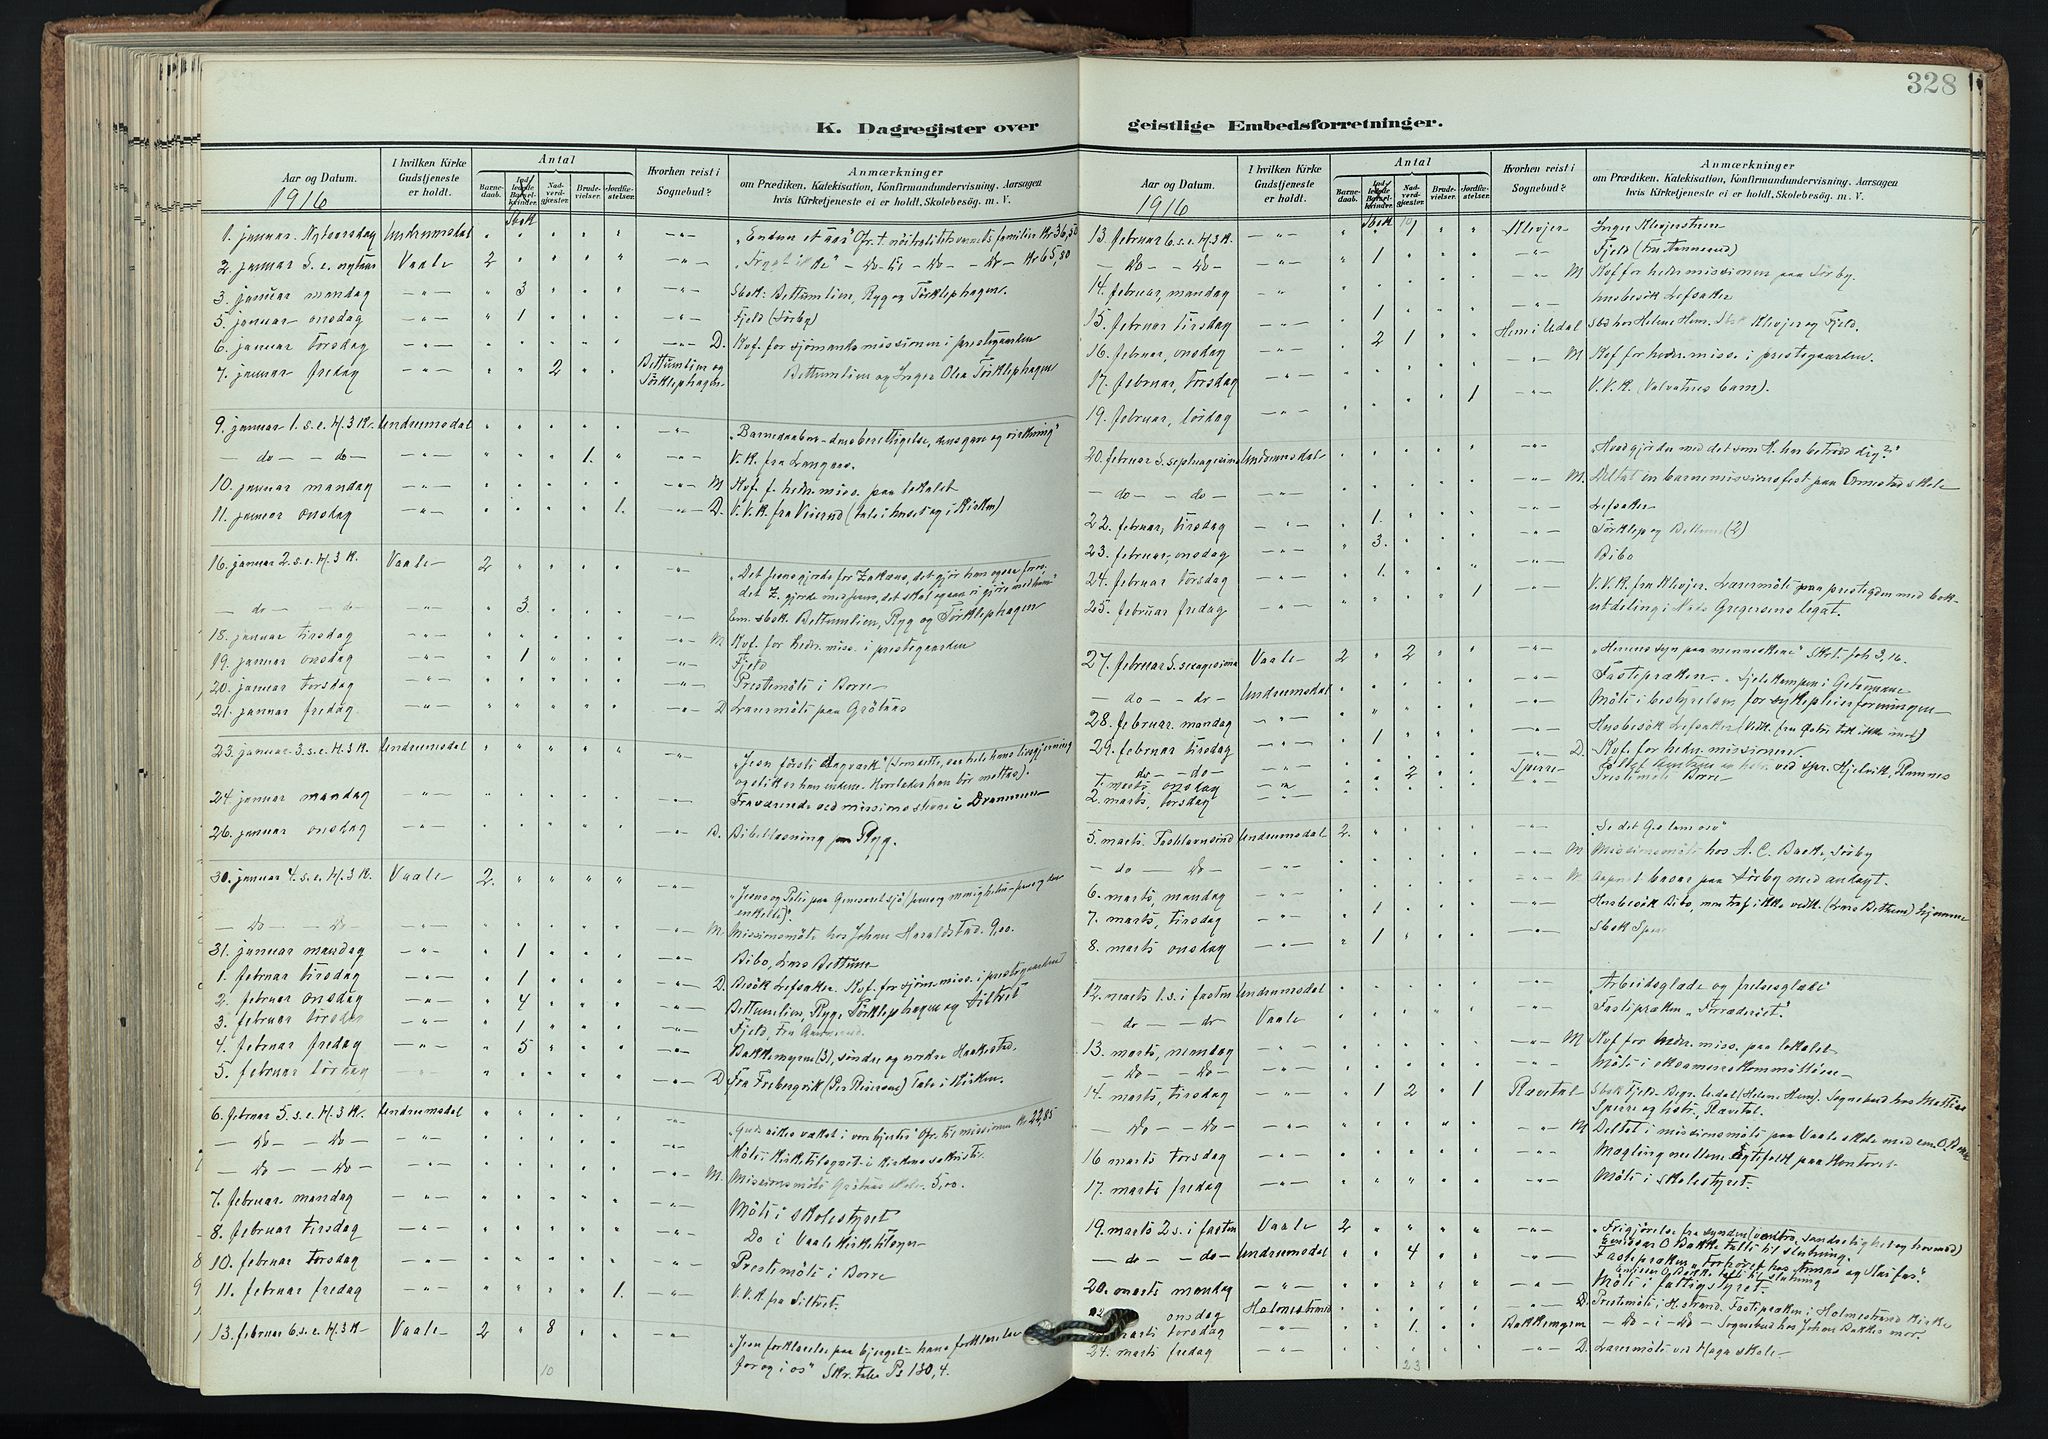 328
K. Dagregister over geistlige Embedsforretninger.
Aar og Datum.
I hvilken Kirke Gudstjeneste er holdt.
Antal
Barnedaab.
Indledede Barselkvinder.
Nadverdgjæster.
Brudevielser.
Jordfæstelser.
Hvorhen reist i Sognebud?
Anmærkninger
om Prædiken, Katekisation, Konfirmandundervisning, Aarsagen
hvis Kirketjeneste ei er holdt, Skolebesøg. m. V.
1916
Sbok
1. januar. Nytaarsdag Undrumsdal "Endnu et aar" Ofr. t. nöitralitetsvernets familier Kr 36,50
2. januar S. e. nytaar Vaale 2 "Frygt ikke" – do – do – do – Kr 65,80
3. januar mandag 3 Sbok: Bettumlien, Ryg og Törklephagen.
5. januar onsdag 1 Fjeld (Sörby)
6. januar torsdag D. Kvf. for sjömandsmissionen i prestegaarden
7. januar fredag 2 Bettumlien og Törklephagen Bettumlien og Inger Olea Törklephagen
9. januar 1. s. e. H. 3 K. Undrumsdal "Barnedaaben – dens berettigelse, ansvar og virkning"
– do – – do – 1. V. K. fra Langaas.
10. januar mandag M Kvf. f. hedn. miss. paa lokalet
11. januar onsdag 1. D. V. V. K. fra Vierød (tale i huset og i Kirken)
16. januar 2. s. e. H. 3 K. Vaale 2 "Det Jesus gjorde for Zakæus, det gjör han ogsaa for os,
det Z. gjorde med Jesus, det skal ogsaa vi gjöre med ham"
– do – do 3. Em. sbok. Bettumlien, Ryg og Törklephagen
18. januar tirsdag M Kvf. for hedn. miss. i prestegaarden
19. januar onsdag 1 Fjeld
20. januar torsdag Prestemöte i Borre
21. januar fredag D Lærermöte paa Grötaas
23. januar 3. s. e. H. 3 K. Undrumsdal "Jesu förste dagverk"
24. januar mandag Fraværende ved missionsstevne i Drammen
26. januar onsdag B. Bibellæsning paa Ryg.
30. januar 4. s. e. H. 3 K. Vaale 2. "Jesus og Peter paa Genesaret sjö
enkelte)".
– Do – – Do – M. Missionsmöte hos Johan Haraldstad. 9,00.
31. januar mandag 1 Bibo, Lars Bettum
1. februar tirsdag 1 D. Besök Lefsaker. Kvf. for sjöm. miss. i prestegaarden
2. februar onsdag 4 Bettumlien, Ryg, Törklephagen og Siltvet
3. februar torsdag 1 Fjeld, Fru Aannerud
4. februar fredag 5 Bakkemyrene (3), söndre og nordre Haakestad.
5. februar lördag D Fra Frebergvik Tale i Kirken.
6. februar 5. s. e. H. 3 K. Undrumsdal "Guds rikes vækst i vore hjerter" Ofr. til missionen Kr 22,85
– Do – – Do Möte i Kirketilsynet i Kirkens sakristi.
– Do – – Do – M. Missionsmöte Grötaas skole. 5,00.
7. februar mandag Möte i skolestyret
8. februar tirsdag Do i Vaale Kirketilsyn
10. februar torsdag Prestemöte i Borre
11. februar fredag 1. V. V. K. fra Siltvet.
13. februar 6. s. e. H. 3 K Vaale 2 8 "Jesu forklarelse paa bjerget – hans forklarelse
for og i os" Skr. tale Ps 130,4.
10
Aar og Datum.
I hvilken Kirke Gudstjeneste er holdt.
Antal
Barnedaab.
Indledede Barselkvinder.
Nadverdgjæster.
Brudevielser.
Jordfæstelser.
Hvorhen reist i Sognebud?
Anmærkninger
om Prædiken, Katekisation, Konfirmandundervisning, Aarsagen
hvis Kirketjeneste ei er holdt, Skolebesøg. m. V.
1916
Sbok 10
13. februar 6. s. e. H. 3 K. Klevjer Inger Klevjer
– Do – – Do – 1 Fjeld (Fru Aannerud)
14. februar, mandag M Kvf for hedn. missionen paa Sörby.
15. februar tirsdag 1 Husbesök Lefsaker
16. februar, onsdag 2 1 Hem i Udal Sbd hos Helene Hem. Sbok Klevjer og Fjeld.
17. februar, torsdag M Kvf for hedn. miss. i prestegaarden.
19. februar, lördag 1 V. V. K. (Valvatnes barn).
20. februar S. septuagesima Undrumsdal "Hvad gjör du med det som H. har betrodd dig?"
– do – – do – M. Deltat in barnemissionsfest paa Ormestad skole
22. februar, tirsdag 1. Lefsaker
23. februar, onsdag 3. Törklep og Bettum (2)
24. februar torsdag 1. Bibo
25. februar fredag 1 V. V. K. fra Klevjer. Lærermöte paa prestegden med bok-
utdeling i Niels Gregersens legat.
27. februar S. sexagesima Vaale 2 2 "Herrens syn paa menneskene" Skrt. Joh 3,16.
– do – – do – Undrumsdal Fastepræken. "Sjelekampen i Getsemane
28. februar. mandag Möte i bestyrelsen for sykepleieforeningen
29. februar tirsdag 1 Husbesök Lefsaker
– do – – do – D. Kvf. for hedn. missionen.
1. marts onsdag 2 Sperre ved spr. Hjelvik, Ramnes
2. marts, torsdag Prestemöte Borre
5. marts. Fastelavnssönd Undrumsdal 2. "Se det G.s lam osv"
– do – – Do – M Missionsmöte hos A. C. Bakke, Sörby
6. marts, mandag M Aapnet basar paa Sörby med andagt.
7. marts, tirsdag 1 Husbesök Bibo, men traf ikke vedk. (Lars Bettum) hjemme
8. marts onsdag 1 Sbok Sperre
12. marts 1. s. i fasten Undrumsdal "Arbeidsglæde og frelsesglæde"
– do – – do – Vaale Fastepræken "Forræderiet".
13. marts, mandag M Kvf for hedn. miss. paa lokalet
– Do – – Do – Möte i
14. marts, tirsdag 1 2 1 Rævetal Sbok Fjeld. Begr. Ledal (Helene Hem). Sognebud hos Mathias
Sperre og hstr. Rævetal.
– Do – – Do – M Deltat i missionsmöte paa Vaale skole med em. O. Bakke
16 marts torsdag Mægling mellem Egtefolk paa Kontoret
17. marts fredag Möte i skolestyret.
19. marts 2 s. i fasten Vaale 2 "Frigjörelse fra synden (vantro, sanselighet og hovmod)
Emissær O Bakke talte til slutning.
– do – – do – Undrumsdal 4 Fastepræken "Forhöret hos Annas og Kaifas".
Emisær O Bakke talte til slutning
20. marts mandag Möte i fattigstyret.
onsdag Holmestrand D. Prestemöte i H.strand. Fastepræken i Holmestrand Kirke
marts torsdag 1. Bakkemyren – do – i – Do – Sognebud hos Johan Bakkes mor.
24. marts fredag D. Lærermöte ved Haga skole
23